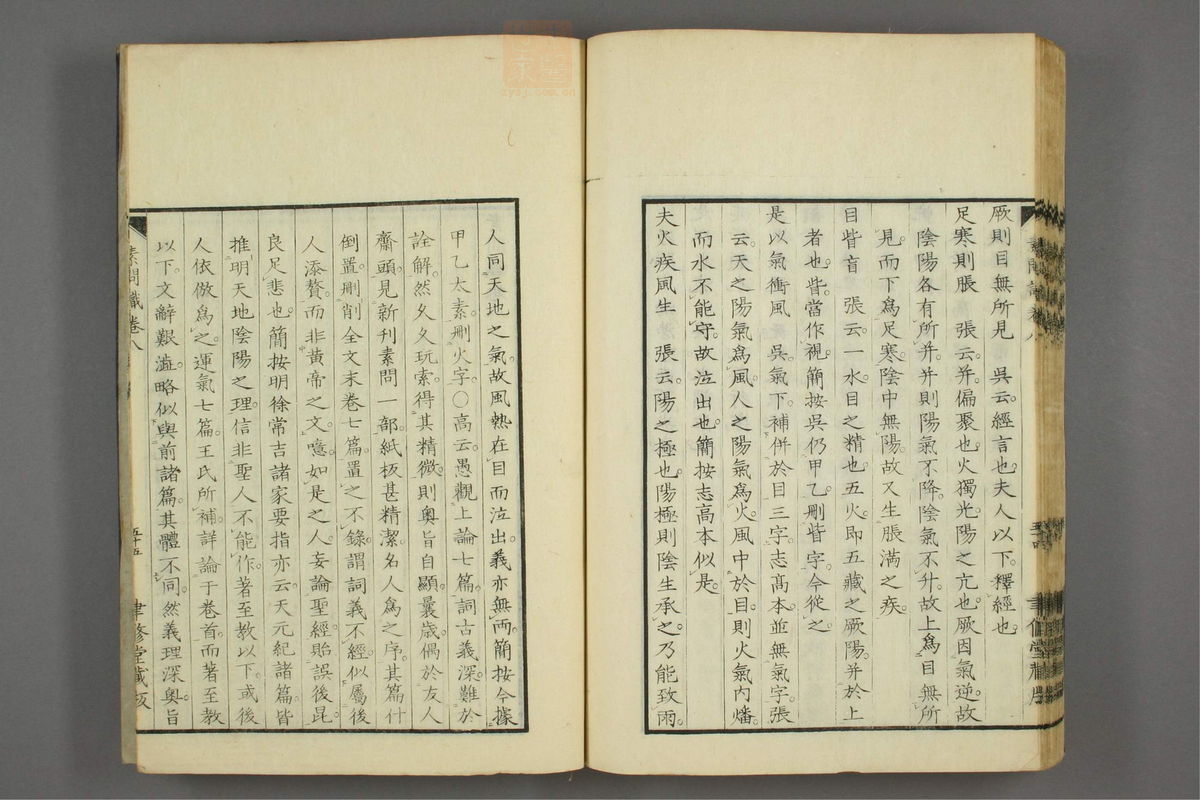 厥則目無所見　吳云。經言也。夫人以下。釋經也。
足寒則脹　張云。并。偏聚也。火獨光。陽之亢也。厥因氣逆。故
陰陽各有所并。并則陽氣不降。陰氣不升。故上爲目無所
見。而下爲足寒。陰中無陽。故又生脹滿之疾。
目眥盲　張云。一水。目之精也。五火。即五藏之厥陽并於上
者也。眥當作視。簡按吳仍甲乙。刪眥字。今從之。
是以氣衝風　吳氣下。補併於目三字。志高本並無氣字。張
云。天之陽氣爲風。人之陽氣爲火。風中於目。則火氣內燔。
而水不能守。故泣出也。簡按志高本似是。
夫火疾風生　張云。陽之極也。陽極則陰生承之。乃能致雨。
人同天地之氣。故風熱在目而泣出。義亦無兩。簡按今據
甲乙太素。刪火字。○高云。愚觀上論七篇。詞古義深。難於
詮解。然久久玩索。得其精微。則奧旨自顯。曩歲偶於友人
齋頭。見新刊素問一部。紙板甚精潔。名人爲之序。其篇什
倒置。刪削全文。末卷七篇。置之不錄。謂詞義不經。似屬後
人添贅。而非黃帝之文。噫。如是之人。妄論聖經。貽誤後昆。
良足悲也。簡按明徐常吉諸家要指亦云。天元紀諸篇。皆
推明天地陰陽之理。信非聖人不能作。著至教以下。或後
人依倣爲之。運氣七篇。王氏所補。詳論于卷首。而著至教
以下。文辭艱澁。略似與前諸篇。其體不同。然義理深奧。旨
素問識卷八
五十五
聿修堂藏板